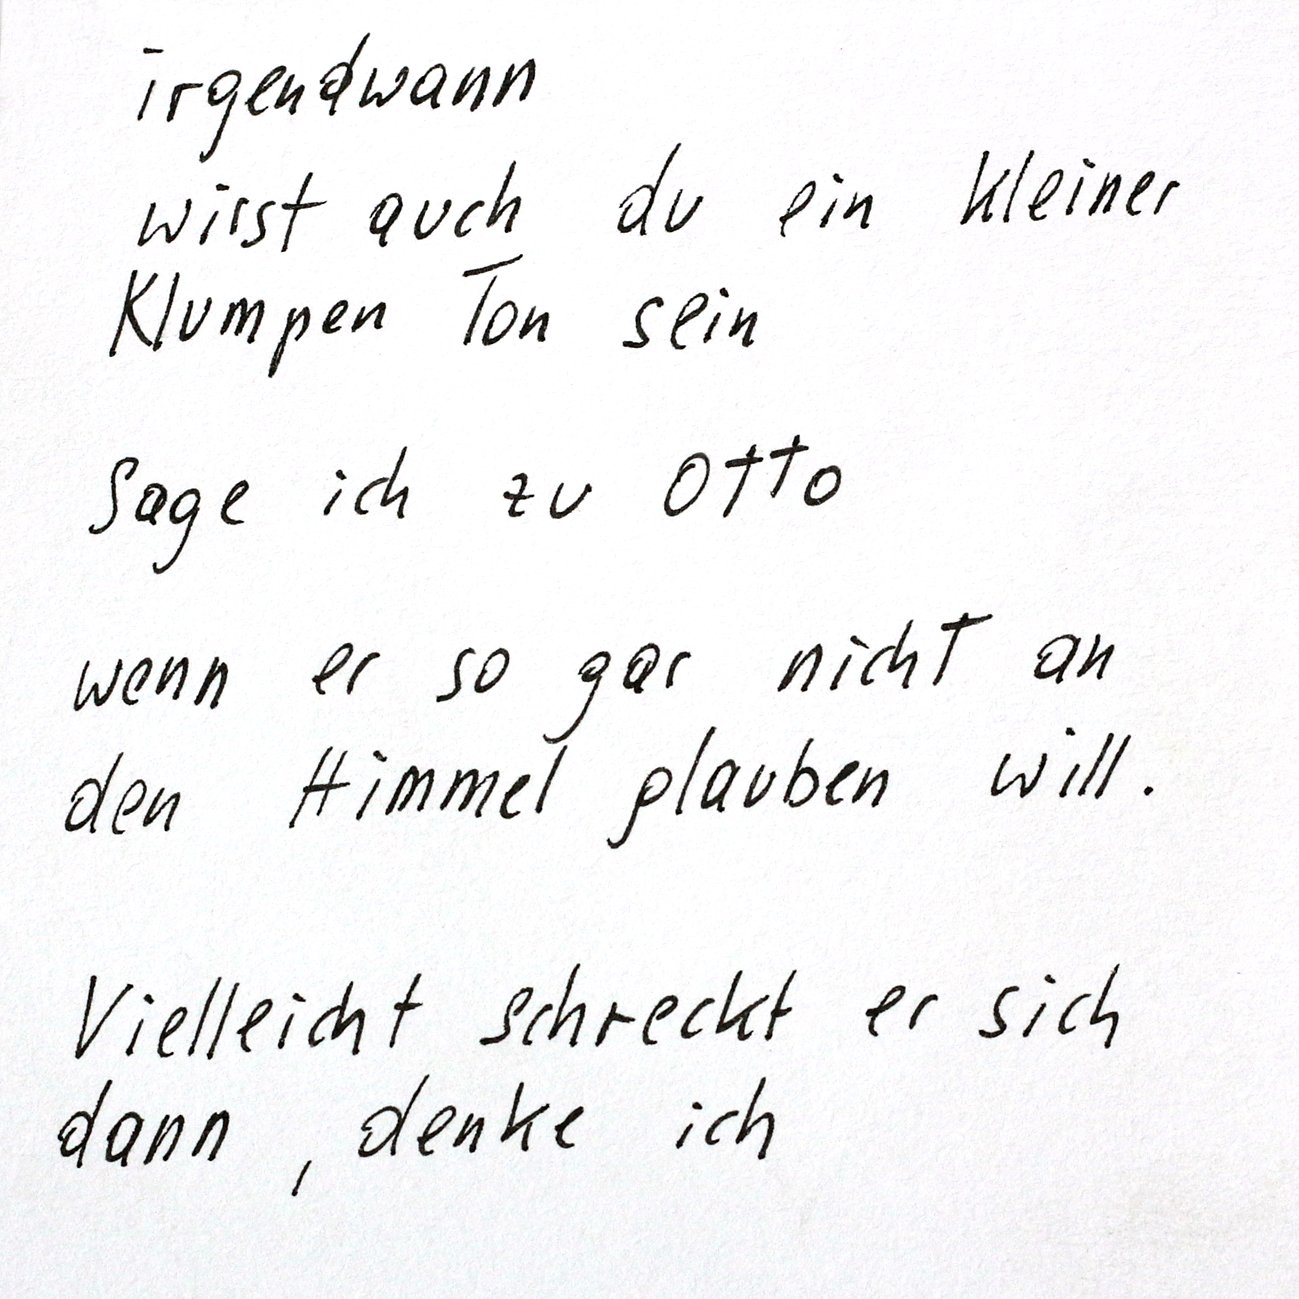 irgendwann
wirst auch du ein kleiner
Klumpen Ton sein
Sage ich zu Otto
wenn er so gar nicht an
den Himmel glauben will.
Vielleicht schreckt er sich
dann, denke ich